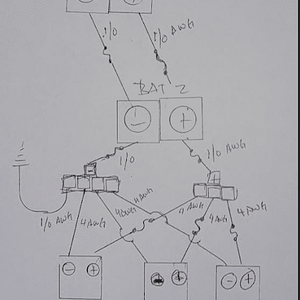 1/0
1/0 AWG
BAT 2
−
+
1/0
1/0 AWG
1/0 AWG
4 AWG
4 AWG
4 AWG
4 AWG
4 AWG
4 AWG
− +
− +